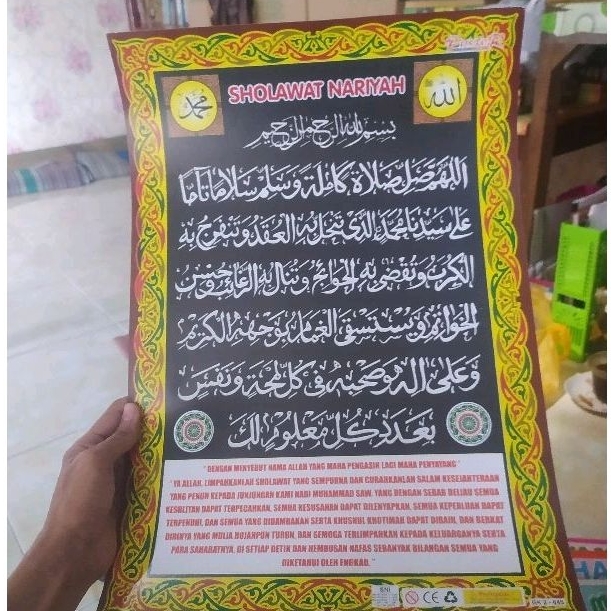 SHOLAWAT NARIYAH
محمد
الله
بسم الله الرحمن الرحيم
اللهم صل صلاة كاملة وسلم سلاما تاما
على سيدنا محمد الذي تنحل به العقد وتنفرج به
الكرب وتقضى به الحوائج وتنال به الرغائب وحسن
الخواتم ويستسقى الغمام بوجهه الكريم
وعلى اله وصحبه في كل لمحة ونفس
بعدد كل معلوم لك
" DENGAN MENYEBUT NAMA ALLAH YANG MAHA PENGASIH LAGI MAHA PENYAYANG "
" YA ALLAH, LIMPAHKANLAH SHOLAWAT YANG SEMPURNA DAN CURAHKANLAH SALAM KESEJAHTERAAN
YANG PENUH KEPADA JUNJUNGAN KAMI NABI MUHAMMAD SAW. YANG DENGAN SEBAB BELIAU SEMUA
KESULITAN DAPAT TERPECAHKAN, SEMUA KESUSAHAN DAPAT DILENYAPKAN, SEMUA KEPERLUAN DAPAT
TERPENUHI, DAN SEMUA YANG DIDAMBAKAN SERTA KHUSNUL KHOTIMAH DAPAT DIRAIH, DAN BERKAT
DIRINYA YANG MULIA HUJANPUN TURUN, DAN SEMOGA TERLIMPAHKAN KEPADA KELUARGANYA SERTA
PARA SAHABATNYA, DI SETIAP DETIK DAN HEMBUSAN NAFAS SEBANYAK BILANGAN SEMUA YANG
DIKETAHUI OLEH ENGKAU. "
SNI
CE